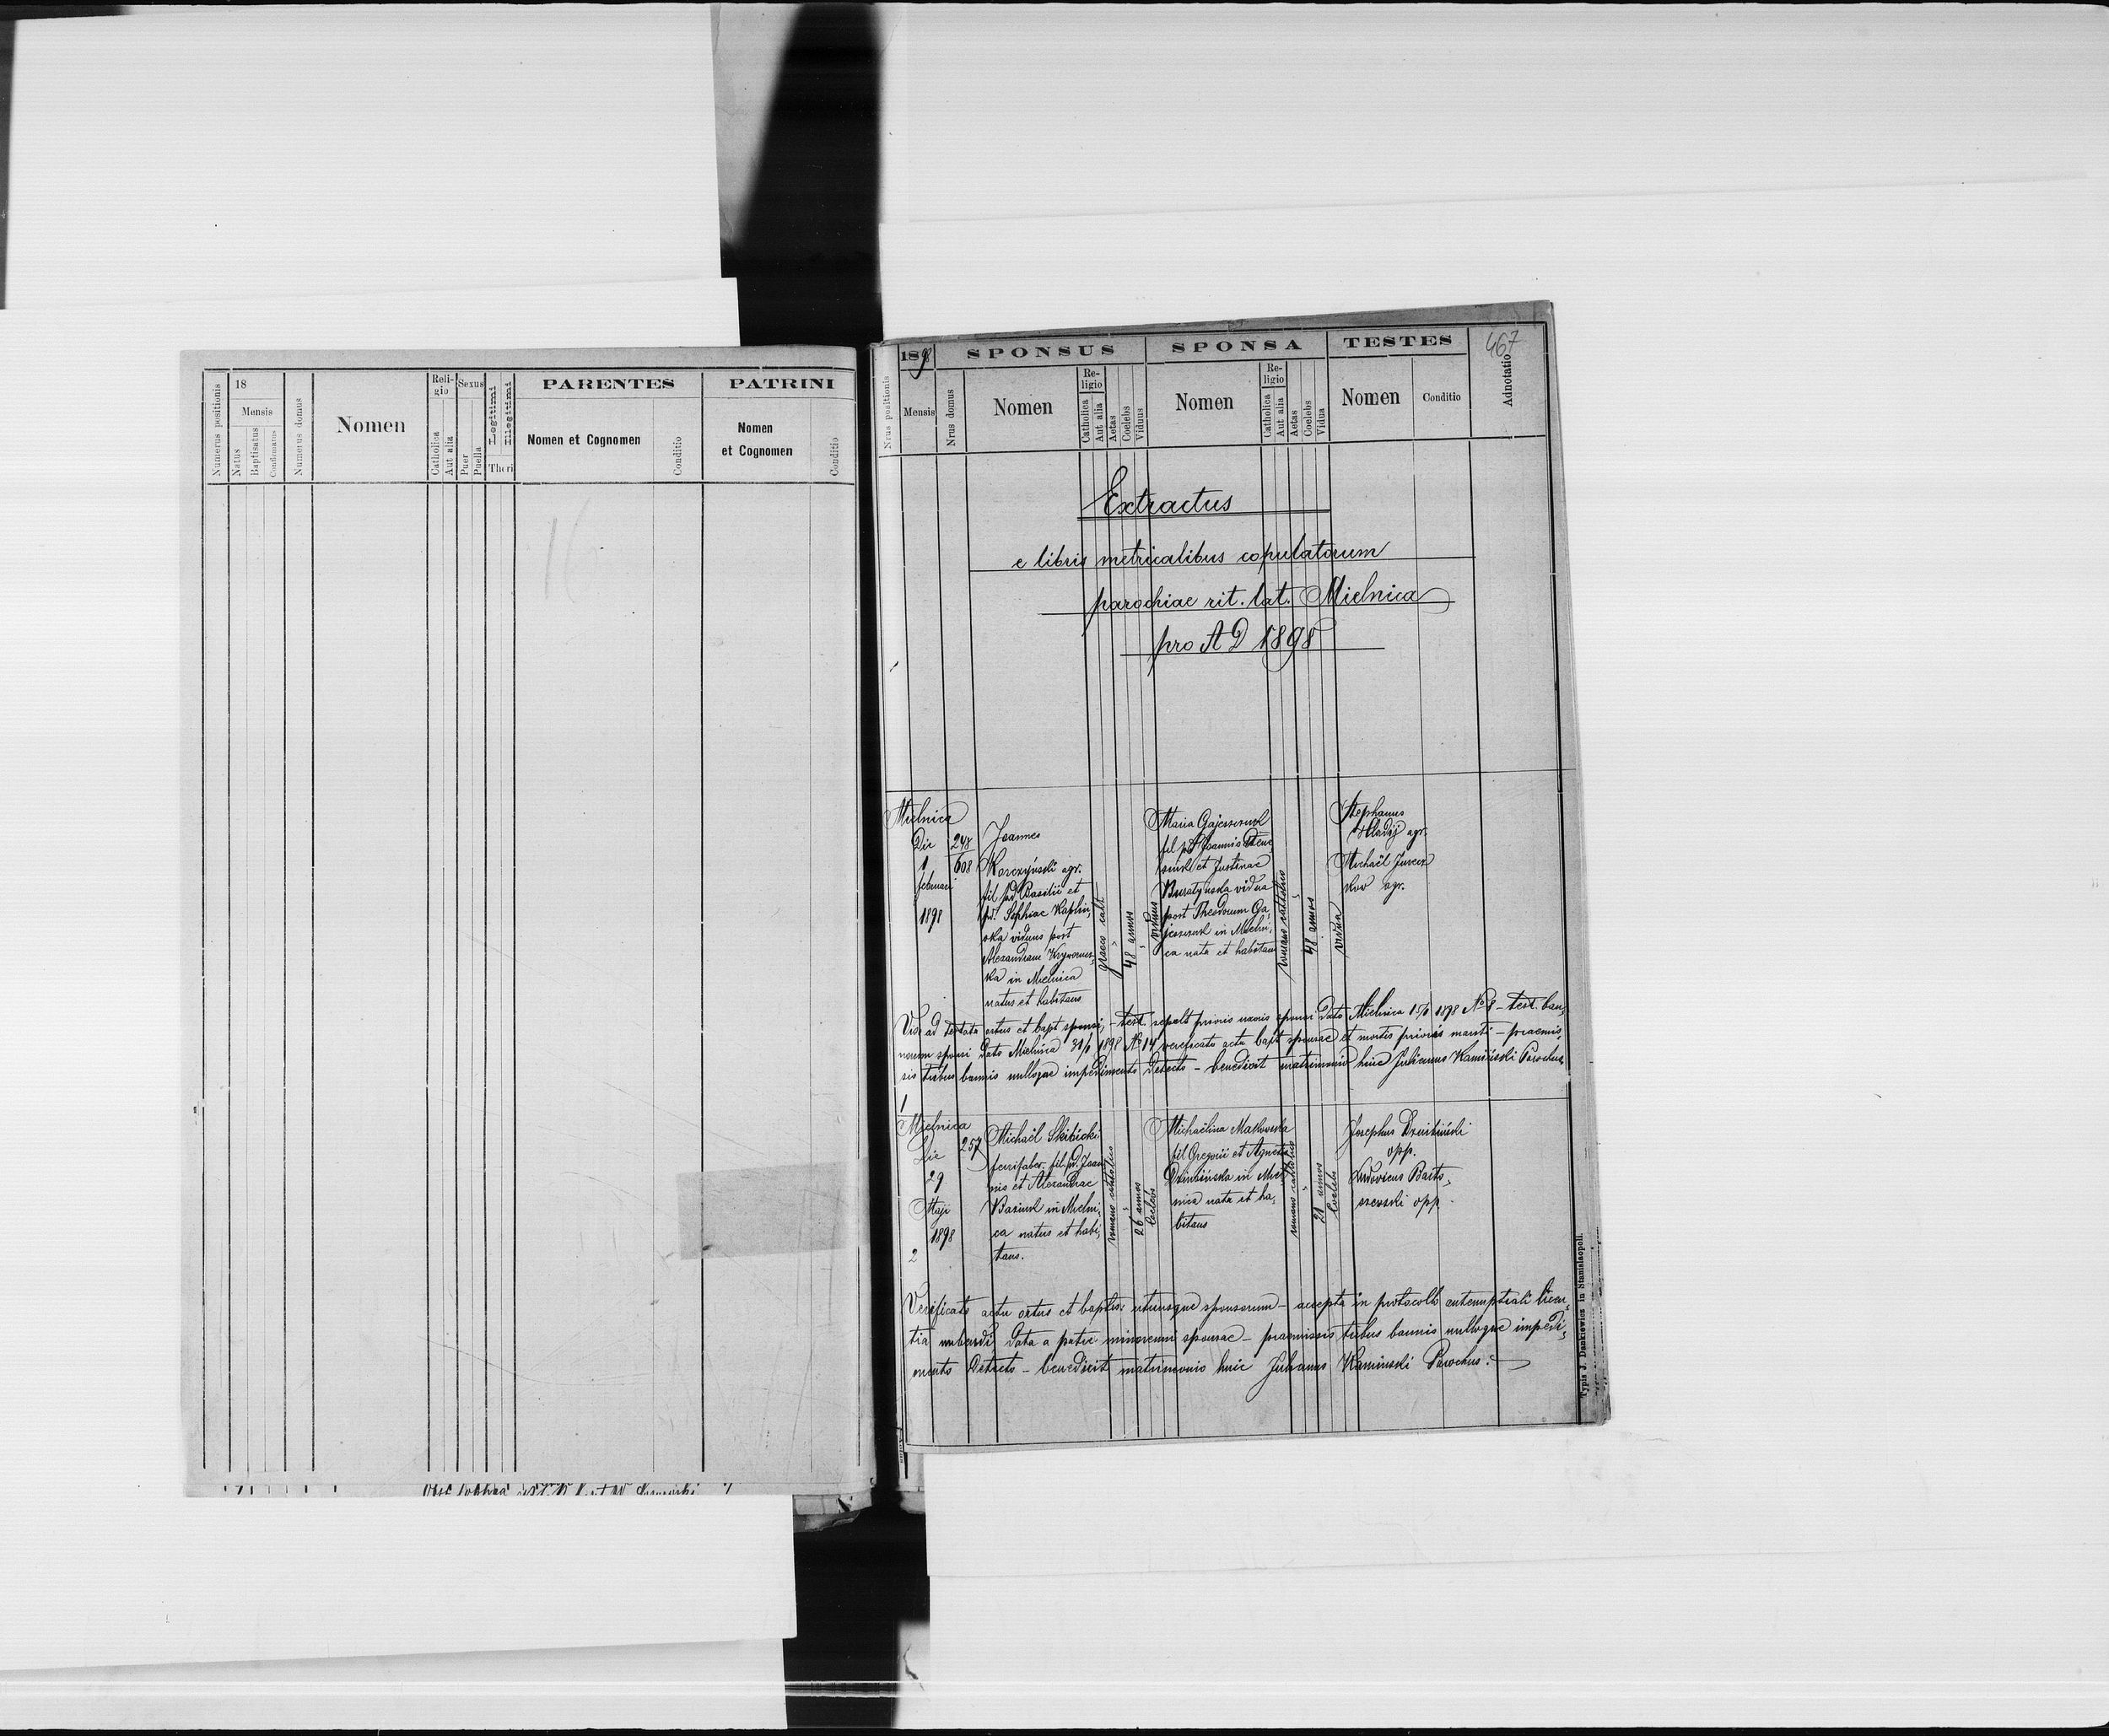 Numerus positionis
18
Mensis
Natus
Baptisatus
Confirmatus
Numerus domus
Nomen
Reli-
gio
Catholica
Aut alia
Sexus
Puer
Puella
Legitimi
Illegitimi
Thori
PARENTES
Nomen et Cognomen
Conditio
PATRINI
Nomen
et Cognomen
Conditio
16
467
Nrus positionis
1898
Mensis
Nrus domus
SPONSUS
Nomen
Re-
ligio
Catholica
Aut alia
Aetas
Coelebs
Viduus
SPONSA
Nomen
Re-
ligio
Catholica
Aut alia
Aetas
Coelebs
Vidua
TESTES
Nomen
Conditio
Adnotatio
Extractus
e libris metricalibus copulatorum
parochiae rit. lat. Mielnica
pro A D 1898
Mielnica
Die
1
februari
1898
248
608
Joannes
Korczyński agr.
fil pd. Basilii et
pd. Sophiae
ska viduus post
Alexandram
ka in Mielnica
natus et habitans
graeco cath
48 annos
viduus
Maria
fil pd Joannis
et Justinae
Buratynska vidua
post Theodorum Ga,
in Mielni,
ca nata et habitans
romano catholico
48 annos
vidua
Stephanus
Hladij agr.
Michaël
agr.
ortus et bapt sponsi, - test. prioris uxoris sponsi dato Mielnica 1898 No 8 - test. ban,
norum sponsi dato Mielnica 31/1 1898 No 14 verificato actu bapt sponsae et mortis prioris mariti - praemis,
sis tribus bannis nulloque impedimento detecto - benedixit matrimonio huic Julianus Kamiński Parochus
1
Mielnica
Die
29
Maji
1898
2
257
Michaël Skibicki
ferrifaber fil. pd. Joan
nis et Alexandrae
in Mielni,
ca natus et habi,
tans.
romano catholico
26 annos
Coelebs
Michaëlina Makowska
fil Gregorii et Agnetis
in Miel
nica nata et ha,
bitans
romano catholico
21 annos
Coelebs
Josephus
opp.
Ludovicus Barto,
szewski opp.
Verificato actu ortus et baptis: utriusque sponsorum - accepta in protocollo antenuptiali licen,
tia nubendi data a patre minorenni sponsae - praemissis tribus bannis nulloque impedi,
mento detecto - benedixit matrimonio huic Julianus Kaminski Parochus.
Typis J. Dankiewicz in Stanislaopoli.